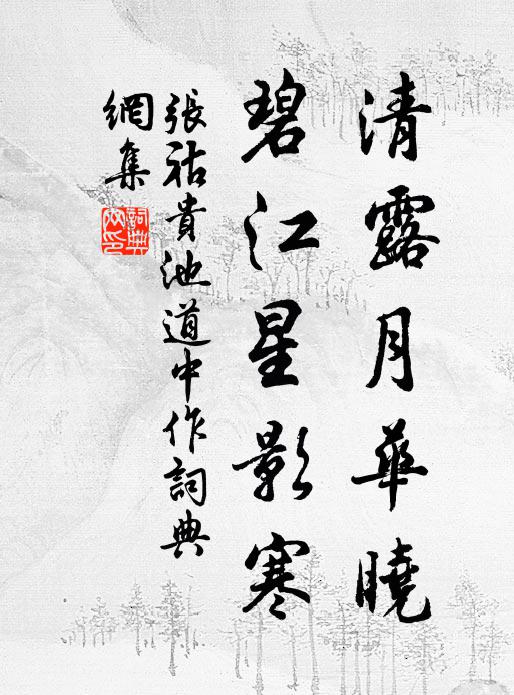 清露月華曉
碧江星影寒
張祜貴池道中作詞典
網集
詞典
网印